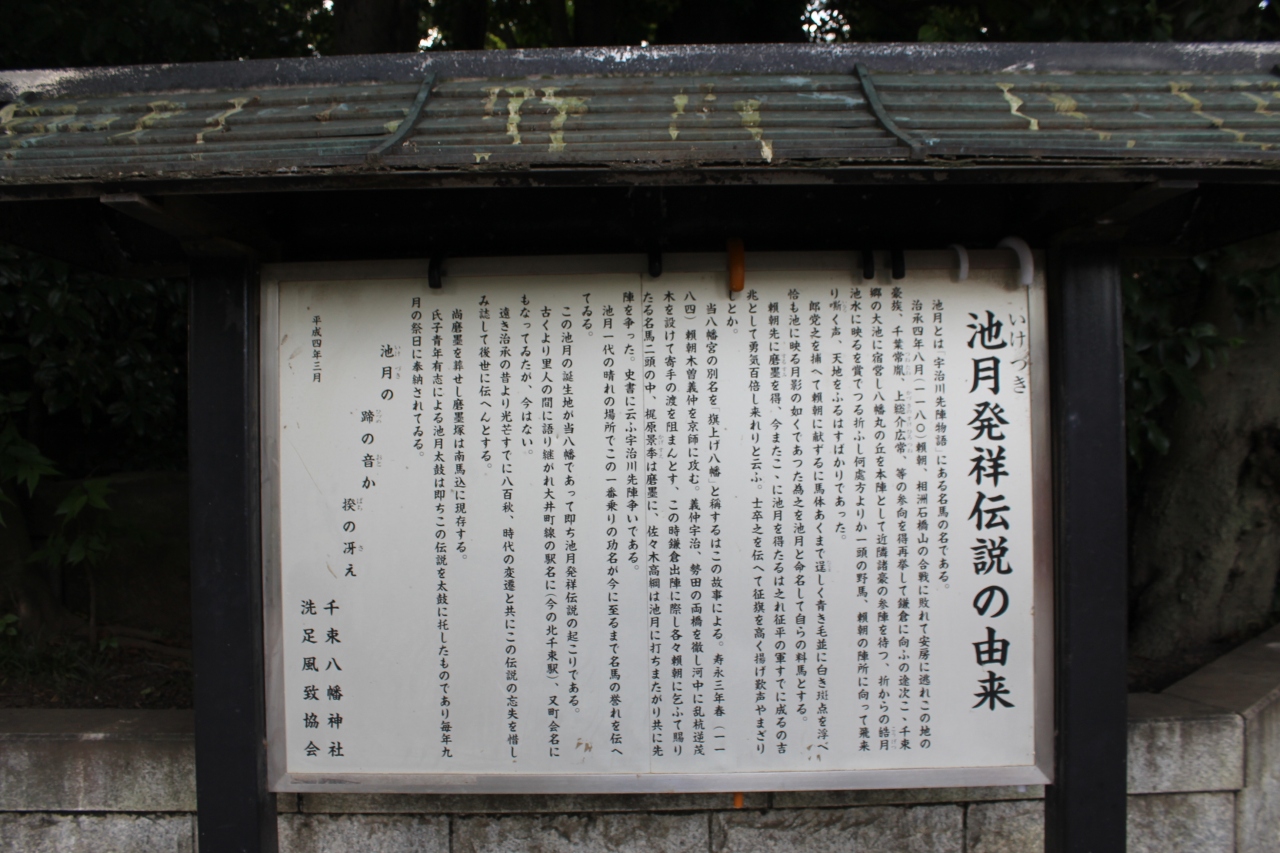 いけづき
池月発祥伝説の由来
池月とは「宇治川先陣物語」にある名馬の名である。
治承四年八月(一一八〇)頼朝、相洲石橋山の合戦に敗れて安房に逃れこの地の
豪族、千葉常胤、上総介広常、等の参向を得再挙して鎌倉に向ふの途次こゝ千束
郷の大池に宿営し八幡丸の丘を本陣として近隣諸豪の参陣を待つ、折からの皓月
池水に映るを賞でつる折ふし何処方よりか一頭の野馬、頼朝の陣所に向って飛来
り嘶く声、天地をふるはすばかりであった。
郎党之を捕へて頼朝に献ずるに馬体あくまで逞しく青き毛並に白き斑点を浮べ
恰も池に映る月影の如くであつた為之を池月と命名して自らの料馬とする。
頼朝先に磨墨を得、今またこゝに池月を得たるは之れ征平の軍すでに成るの吉
兆として勇気百倍し来れりと云ふ。士卒之を伝へて征旗を高く揚げ歓声やまざり
しとか。
当八幡宮の別名を「旗上げ八幡」と称するはこの故事による。寿永三年春(一一
八四)頼朝木曽義仲を京師に攻む。義仲宇治、勢田の両橋を徹し河中に乱杭逆茂
木を設けて寄手の渡を阻まんとす、この時鎌倉出陣に際し各々頼朝に乞ふて賜り
たる名馬二頭の中、梶原景季は磨墨に、佐々木高綱は池月に打ちまたがり共に先
陣を争った。史書に云ふ宇治川先陣争いである。
池月一代の晴れの場所でこの一番乗りの功名が今に至るまで名馬の誉れを伝へ
てゐる。
この池月の誕生地が当八幡であって即ち池月発祥伝説の起こりである。
古くより里人の間に語り継がれ大井町線の駅名に(今の北千束駅)、又町会名に
もなってゐたが、今はない。
遠き治承の昔より光芒すでに八百秋、時代の変遷と共にこの伝説の忘失を惜し
み誌して後世に伝へんとする。
尚磨墨を葬せし磨墨塚は南馬込に現存する。
氏子青年有志による池月太鼓は即ちこの伝説を太鼓に托したものであり毎年九
月の祭日に奉納されてゐる。
池月の
蹄の音か
揆の冴え
平成四年三月
千束八幡神社
洗足風致協会